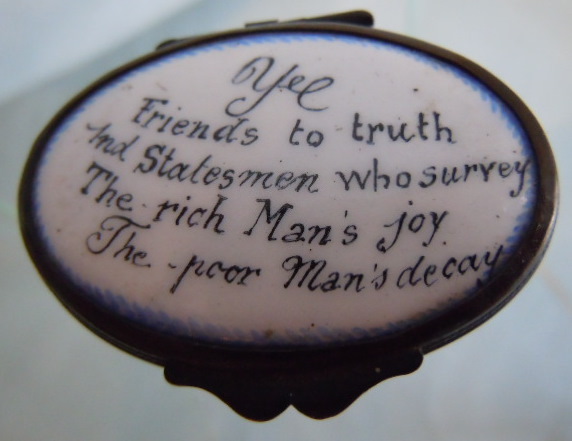 Yee
Friends to truth
And Statesmen who survey
The rich Man's joy
The poor Man's decay